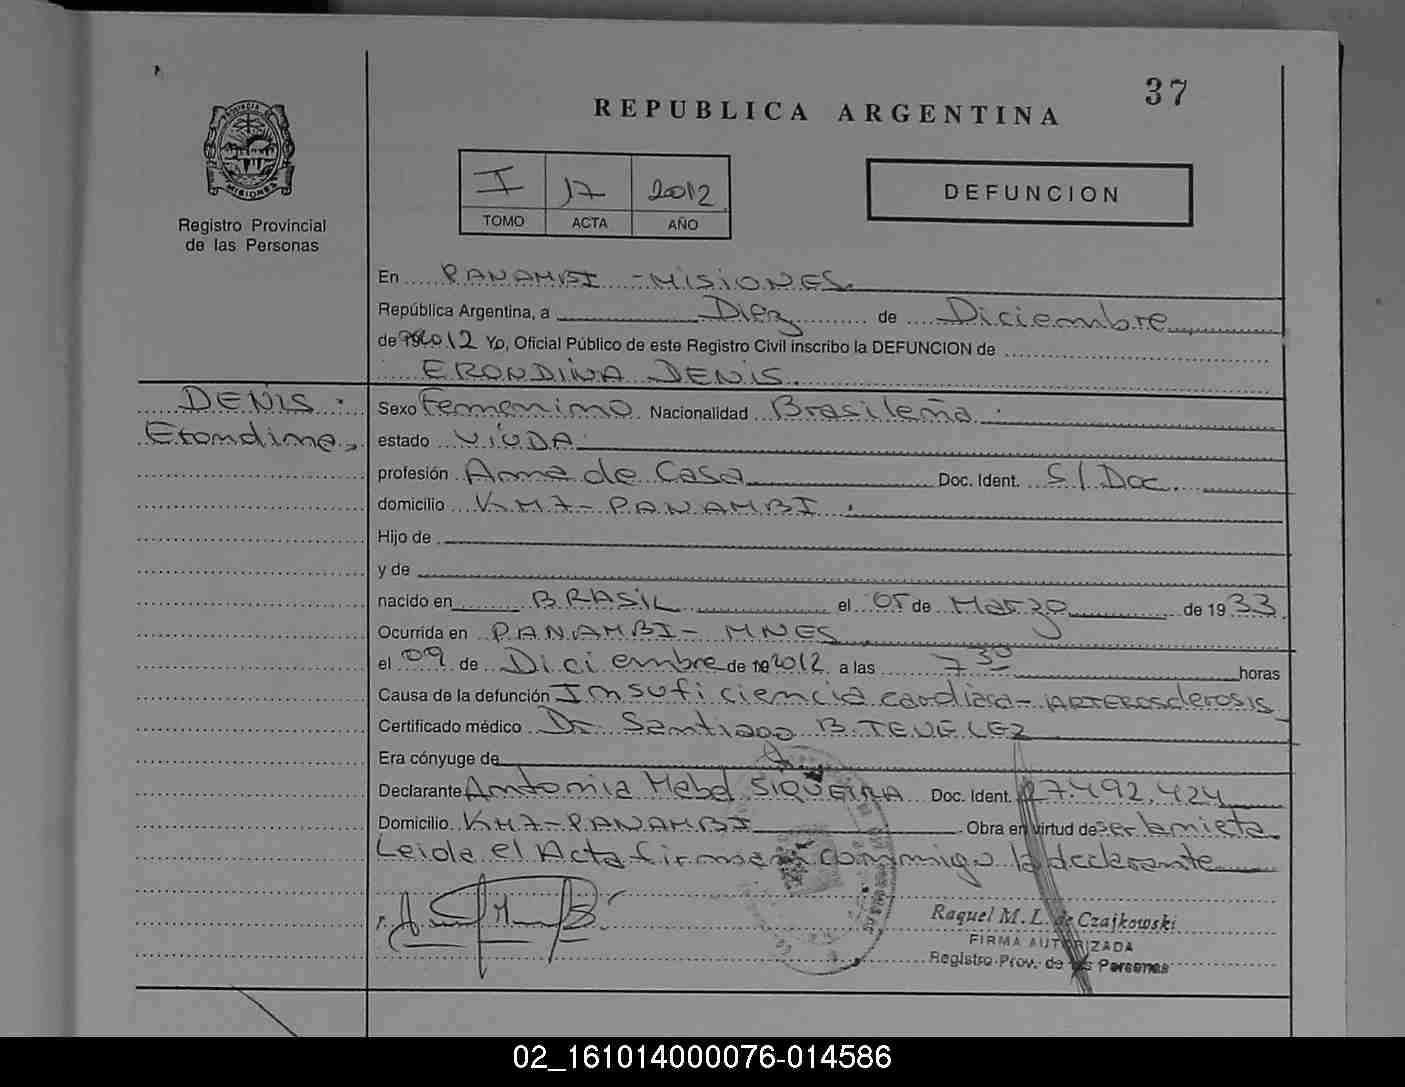 37
REPUBLICA ARGENTINA
PROVINCIA
MISIONES
Registro Provincial
de las Personas
I 17 2012
TOMO ACTA AÑO
DEFUNCION
En PANAMBI - MISIONES.
República Argentina, a Diez de Diciembre
de 2012 Yo, Oficial Público de este Registro Civil inscribo la DEFUNCION de
ERONDINA DENIS.
DENIS.
Erondina,
Sexo Femenino Nacionalidad Brasileña.
estado VIUDA
profesión Ama de Casa Doc. Ident. S/Doc.
domicilio KM7 - PANAMBI.
Hijo de
y de
nacido en BRASIL el 05 de Marzo de 1933.
Ocurrida en PANAMBI - MNES
el 09 de Diciembre de 2012 a las 7 30 horas
Causa de la defunción Insuficiencia cardiaca - ARTEROSclerosis
Certificado médico Dr. Santiago B.
Era cónyuge de
Declarante Antonia Mabel SIQUEIRA Doc. Ident. 27.492.424
Domicilio KM7 - PANAMBI Obra en virtud de ser la nieta.
Leida el Acta firma conmigo la declarante
Raquel M. L. de Czajkowski
FIRMA AUTORIZADA
Registro Prov. de las Personas
02_161014000076-014586